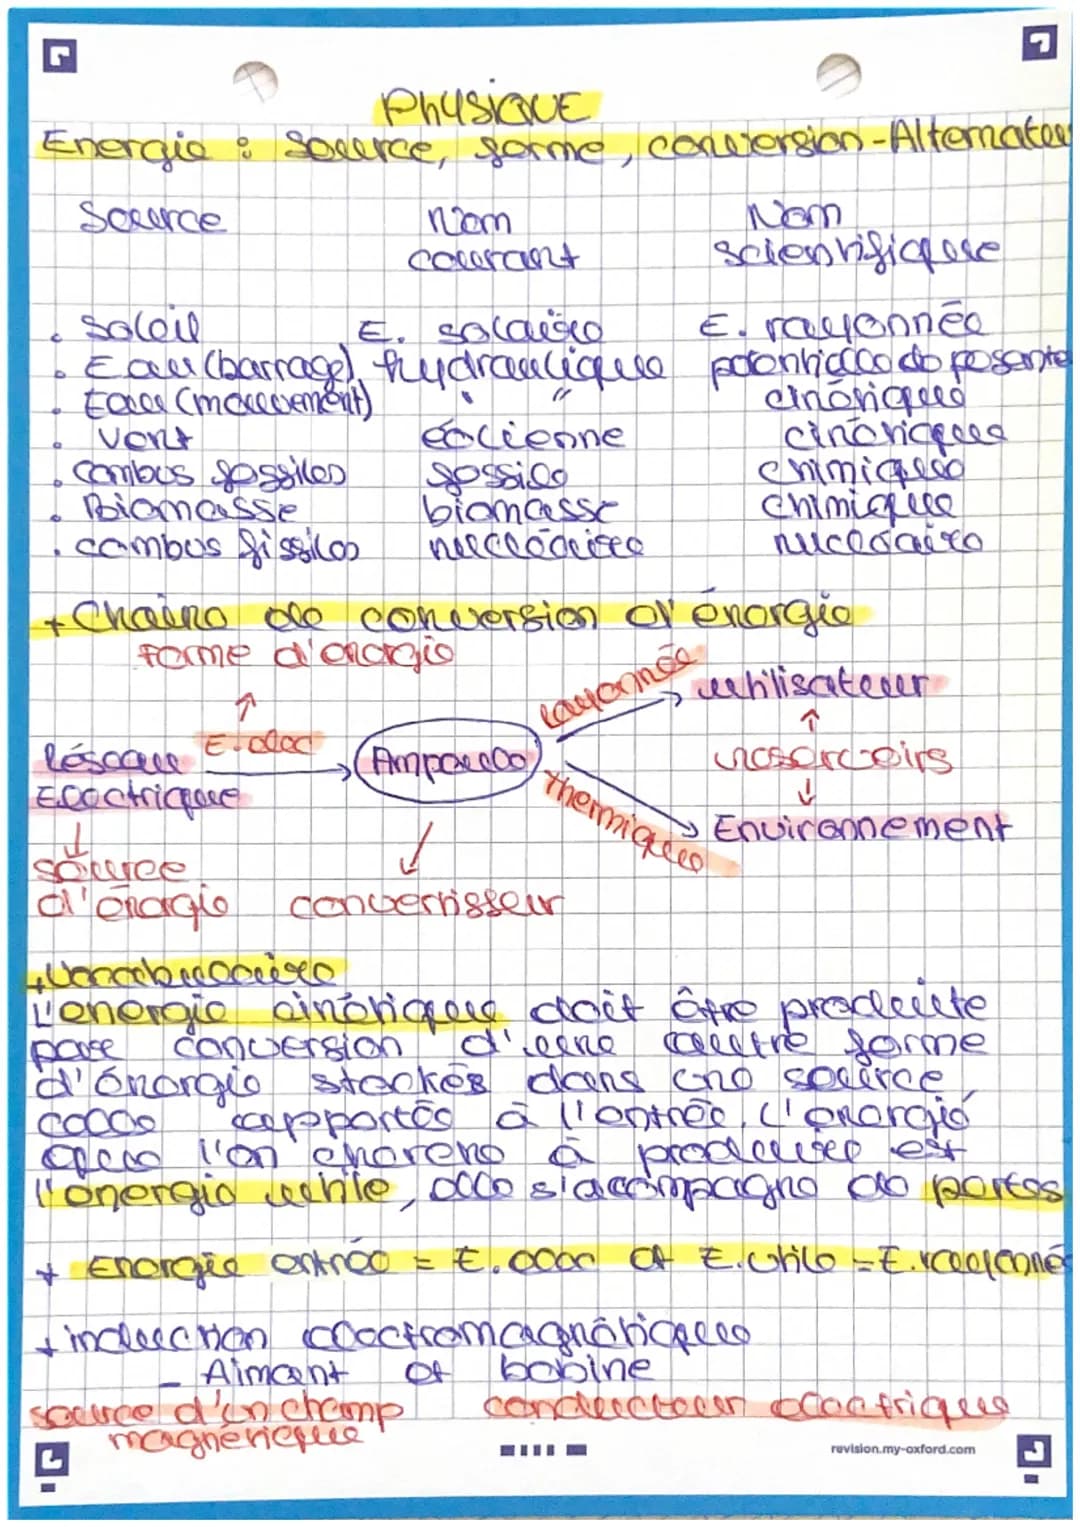 Physique
Energie : Source, forme, conversion - Alternateu
Source Nom Nom
courant scientifique
. Soleil E. solaire E. rayonnée
. Eau (barrage) hydraulique potentielle de pesante
. Eau (mouvement) " " cinétique
. Vent éolienne cinétique
. combus fossiles fossile chimique
. Biomasse biomasse chimique
. combus fissiles nucléaire nucléaire
+ Chaine de conversion d'énergie
forme d'énergie
rayonnée utilisateur
Réseau E. elec Ampoule réservoirs
Electrique
thermique Environnement
source
d'énergie convertisseur
+ Vocabulaire
L'energie cinétique doit être produite
par conversion d'une autre forme
d'énergie stockés dans une source,
celle apportés à l'entrée. L'énergie
que l'on cherche à produire est
l'énergie utile, elle s'accompagne de pertes
+ Energie entrée = E. elec et E. utile = E. rayonnée
+ induction electromagnétique
- Aimant et bobine
source d'un champ conducteur electrique
magnétique
revision.my-oxford.com